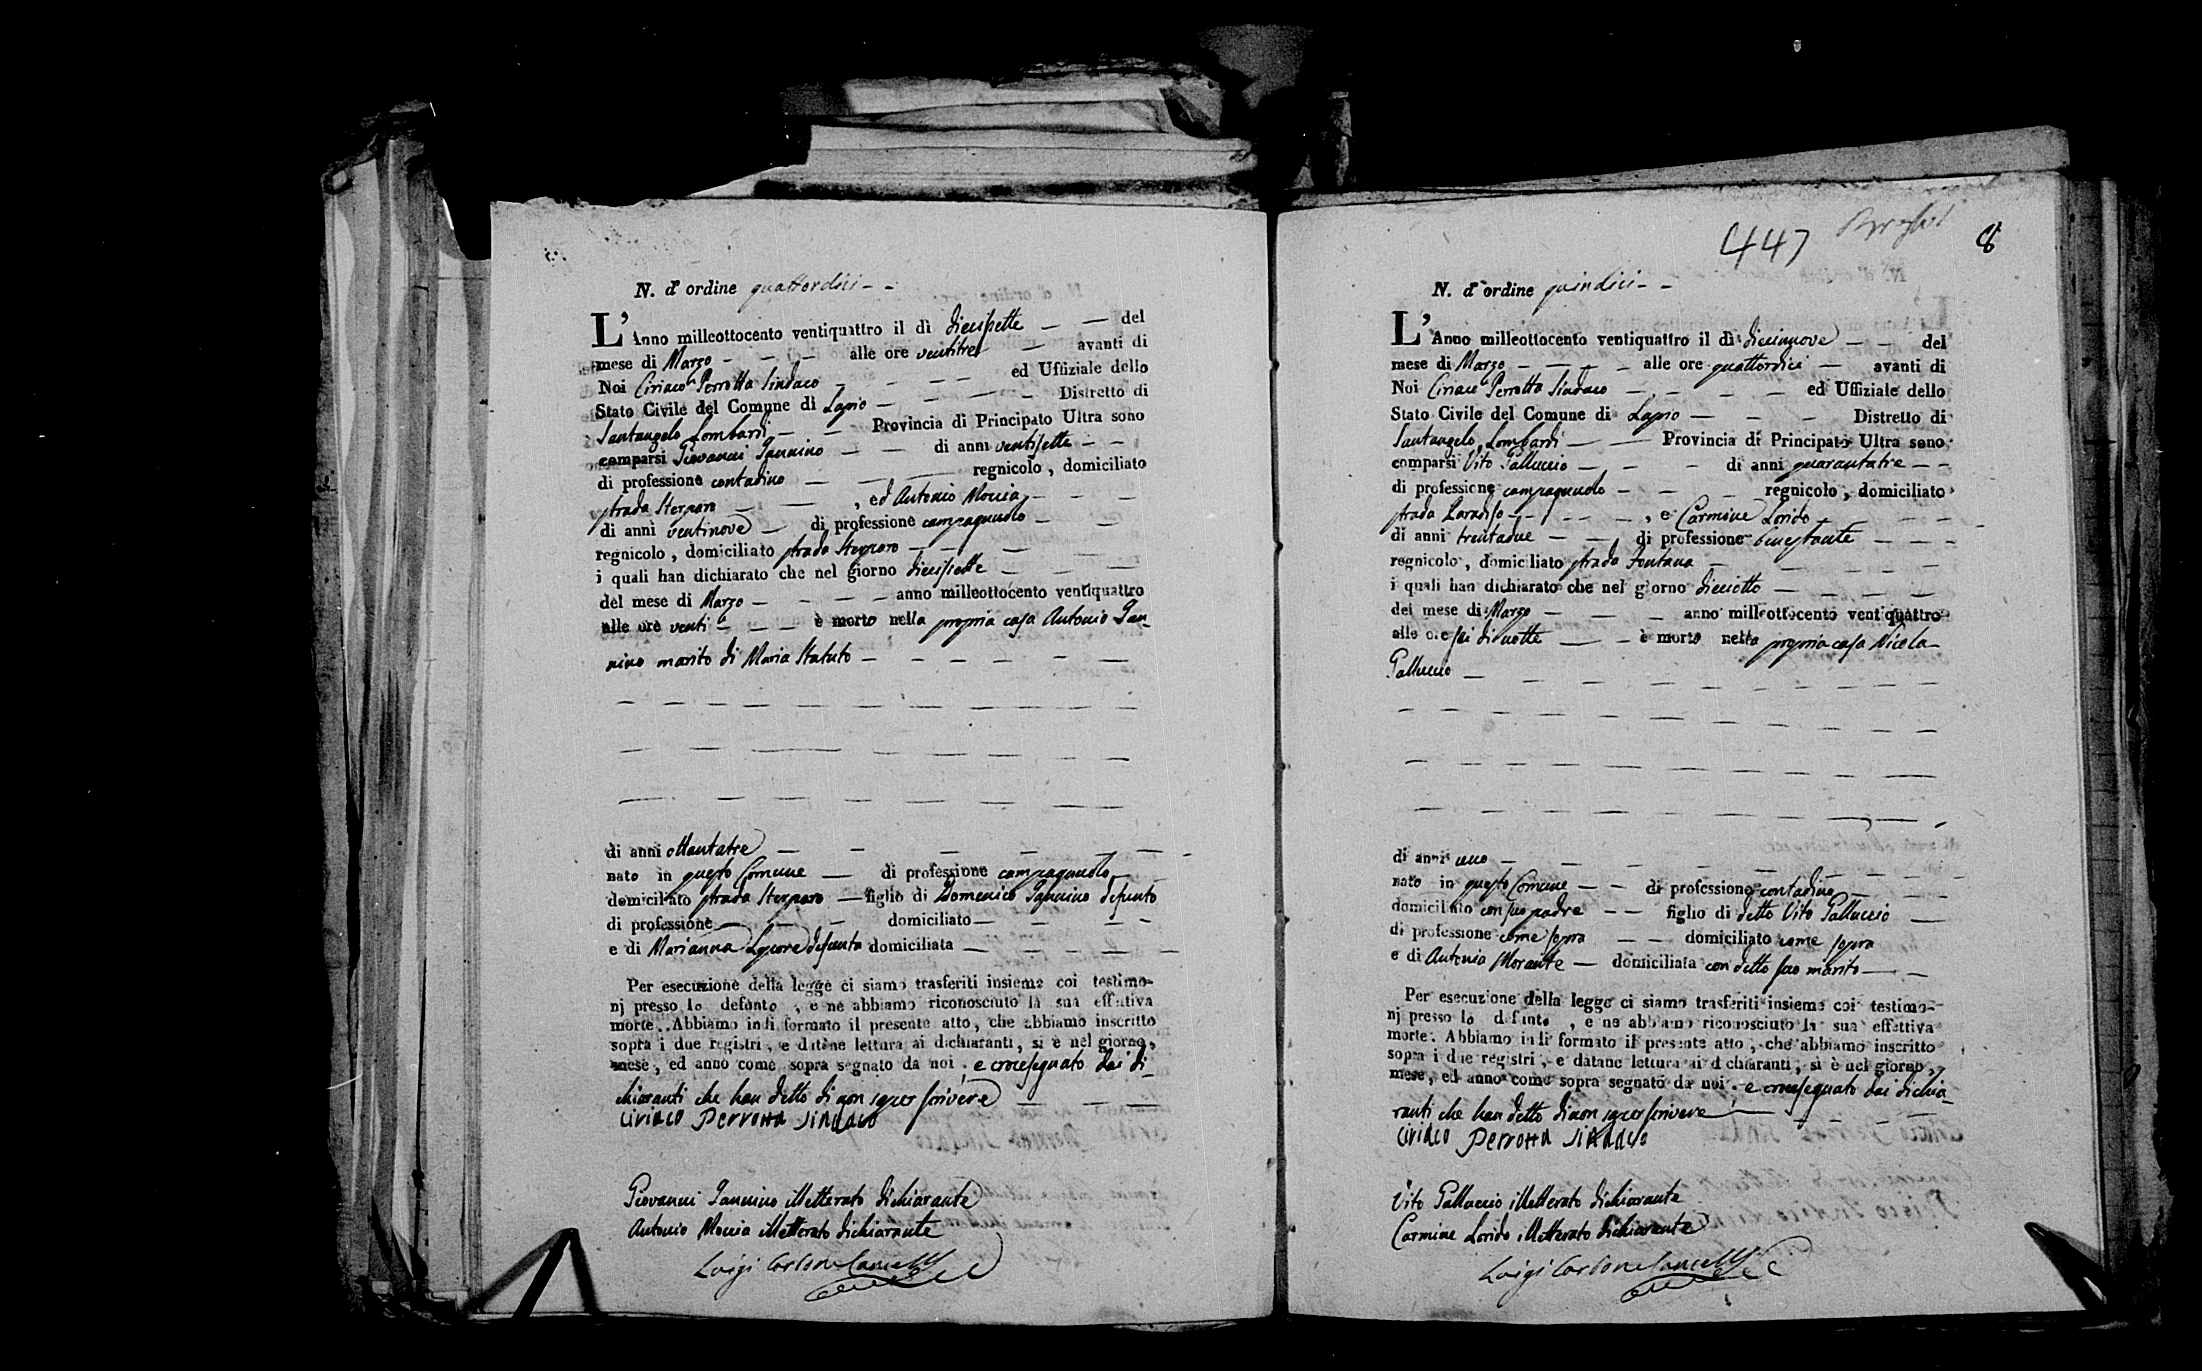 N. d' ordine quattordici
L' Anno milleottocento ventiquattro il dì diecisette del
mese di Marzo alle ore ventitre avanti di
Noi Ciriaco Perrotta Sindaco ed Uffiziale dello
Stato Civile del Comune di Lapio Distretto di
Santangelo Lombardi Provincia di Principato Ultra sono
comparsi Giovanni Iannino di anni ventisette
di professione contadino regnicolo, domiciliato
strada Sterparo, ed Antonio Moccia
di anni ventinove di professione campagnuolo
regnicolo, domiciliato strada Sterparo
i quali han dichiarato che nel giorno diecisette
del mese di Marzo anno milleottocento ventiquattro
alle ore venti è morto nella propria casa Antonio Ian-
nino marito di Maria Statuto
di anni ottantatre
nato in questo Comune di professione campagnuolo
domiciliato strada Sterparo figlio di Domenico Iannino defunto
di professione domiciliato
e di Marianna defunta domiciliata
Per esecuzione della legge ci siamo trasferiti insieme coi testimo-
nj presso lo defonto, e ne abbiamo riconosciuto la sua effettiva
morte. Abbiamo indi formato il presente atto, che abbiamo inscritto
sopra i due registri, e datane lettura ai dichiaranti, si è nel giorno,
mese, ed anno come sopra segnato da noi, e crocesegnato dai di-
chiaranti che han detto di non saper scrivere
Ciriaco Perrotta Sindaco
Giovanni Iannino illetterato dichiarante
Antonio Moccia illetterato dichiarante
Luigi Carbone
447
8
N. d' ordine quindici
L' Anno milleottocento ventiquattro il dì diecinnove del
mese di Marzo alle ore quattordici avanti di
Noi Ciriaco Perrotta Sindaco ed Uffiziale dello
Stato Civile del Comune di Lapio Distretto di
Santangelo Lombardi Provincia di Principato Ultra sono
comparsi Vito Galluccio di anni quarantatre
di professione campagnuolo regnicolo, domiciliato
strada Paradiso, e Carmine Lorido
di anni trentadue di professione benestante
regnicolo, domiciliato strada Fontana
i quali han dichiarato che nel giorno dieciotto
del mese di Marzo anno milleottocento ventiquattro
alle ore sei di notte è morto nella propria casa Nicola
Galluccio
di anni uno
nato in questo Comune di professione contadino
domiciliato con suo padre figlio di detto Vito Galluccio
di professione come sopra domiciliato come sopra
e di Antonia Morante domiciliata con detto suo marito
Per esecuzione della legge ci siamo trasferiti insieme coi testimo-
nj presso lo defunto, e ne abbiamo riconosciuto la sua effettiva
morte. Abbiamo indi formato il presente atto, che abbiamo inscritto
sopra i due registri, e datane lettura ai dichiaranti, si è nel giorno,
mese, ed anno come sopra segnato da noi, e crocesegnato dai dichia-
ranti che han detto di non saper scrivere
Ciriaco Perrotta Sindaco
Vito Galluccio illetterato dichiarante
Carmine Lorido illetterato dichiarante
Luigi Carbone